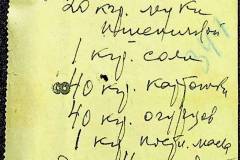 20 кгр. муки
пшеничной
1 кгр. соли
40 кг. картошки
40 кг. огурцов
1 кг масла